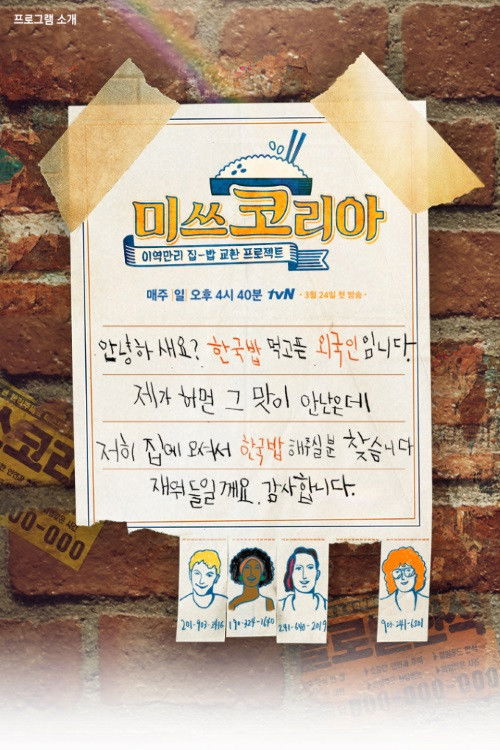 프로그램 소개
미쓰코리아
이역만리 집-밥 교환 프로젝트
매주 일 오후 4시 40분 tvN · 3월 24일 첫 방송 ·
안녕하 새요? 한국밥 먹고픈 외국인입니다.
제가 하면 그 맛이 안난은데
저희 집에 오셔서 한국밥 해주실분 찾습니다
재워 들일 게요. 감사합니다.
코리
00-000
201-903-2416
190-324-1640
241-640-2019
903-241-6201
00-000